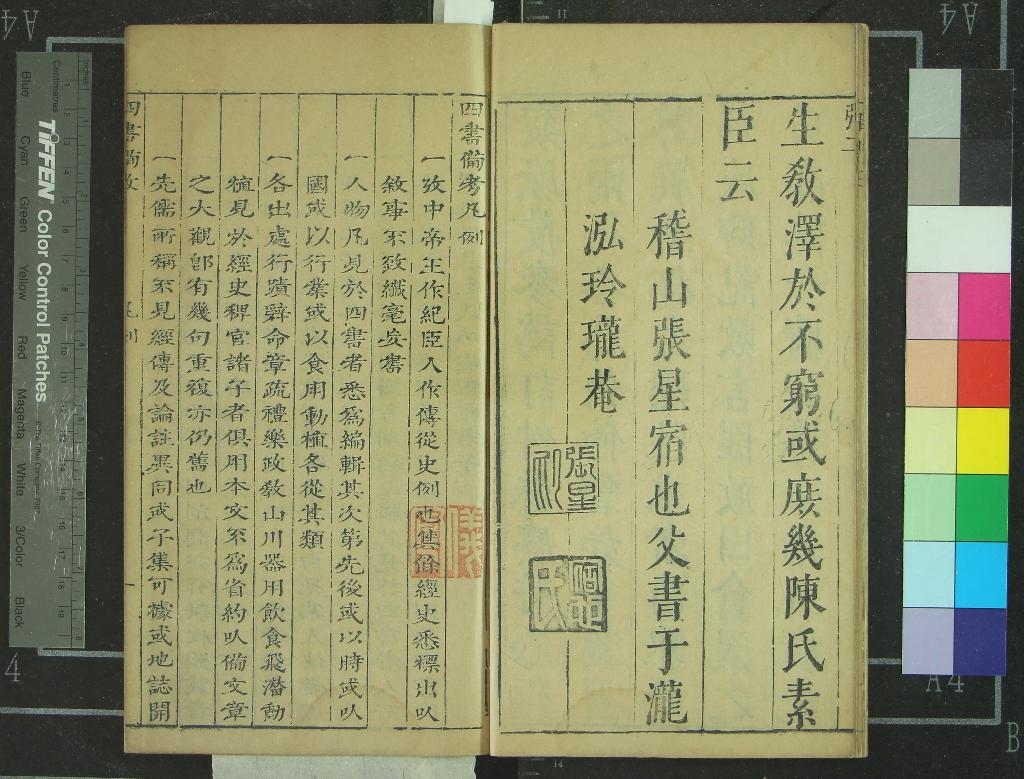 生敎澤於不窮或庶幾陳氏素
臣云
稽山張星宿也父書于瀧
泓玲瓏菴
張星
宿也
氏
四書備考凡例
一攷中帝王作紀臣人作傳從史例也其餘經史悉標出以
敘事不致纖毫妄書
一人物凡見於四書者悉爲編輯其次第先後或以時或以
國或以行業或以食用動植各從其類
一各出處行蹟辭命章疏禮樂政敎山川器用飮食飛潛動
植見於經史稗官諸子者俱用本文不爲省約以備文章
之大觀卽有幾句重復亦仍舊也
一先儒所稱不見經傳及論註異同或子集可據或地誌開
四書備攷
凡例
A4
A4
A4
4
B
Inches
Centimetres
TIFFEN Color Control Patches
©The Tiffen Company, 2007
Blue
Cyan
Green
Yellow
Red
Magenta
White
3/Color
Black